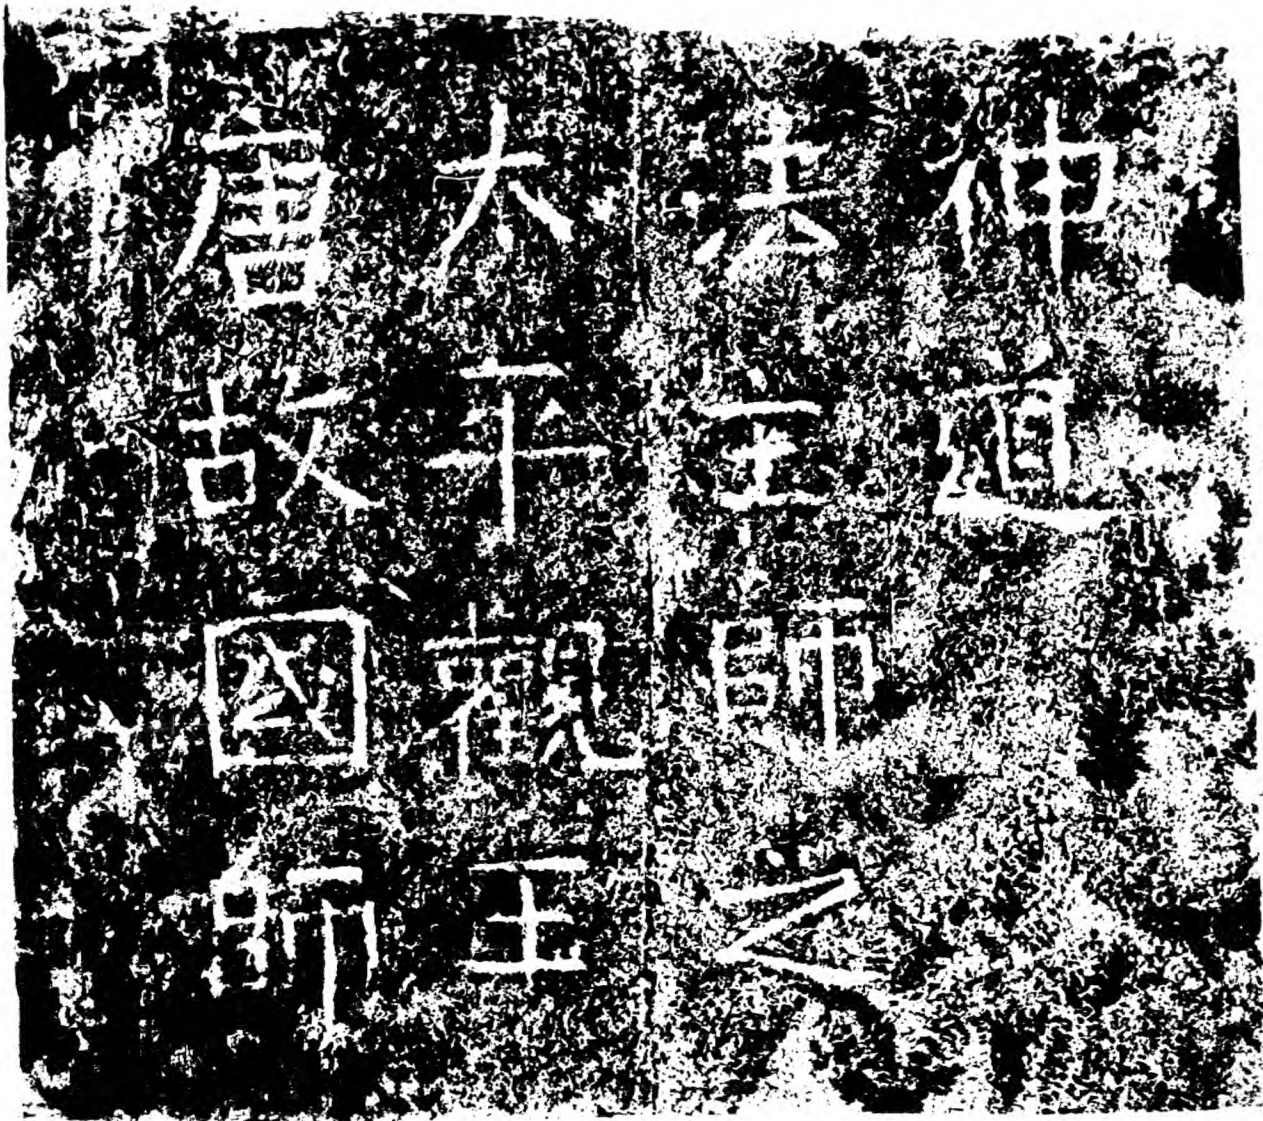 唐故國師
太平觀王
法主師之
神道